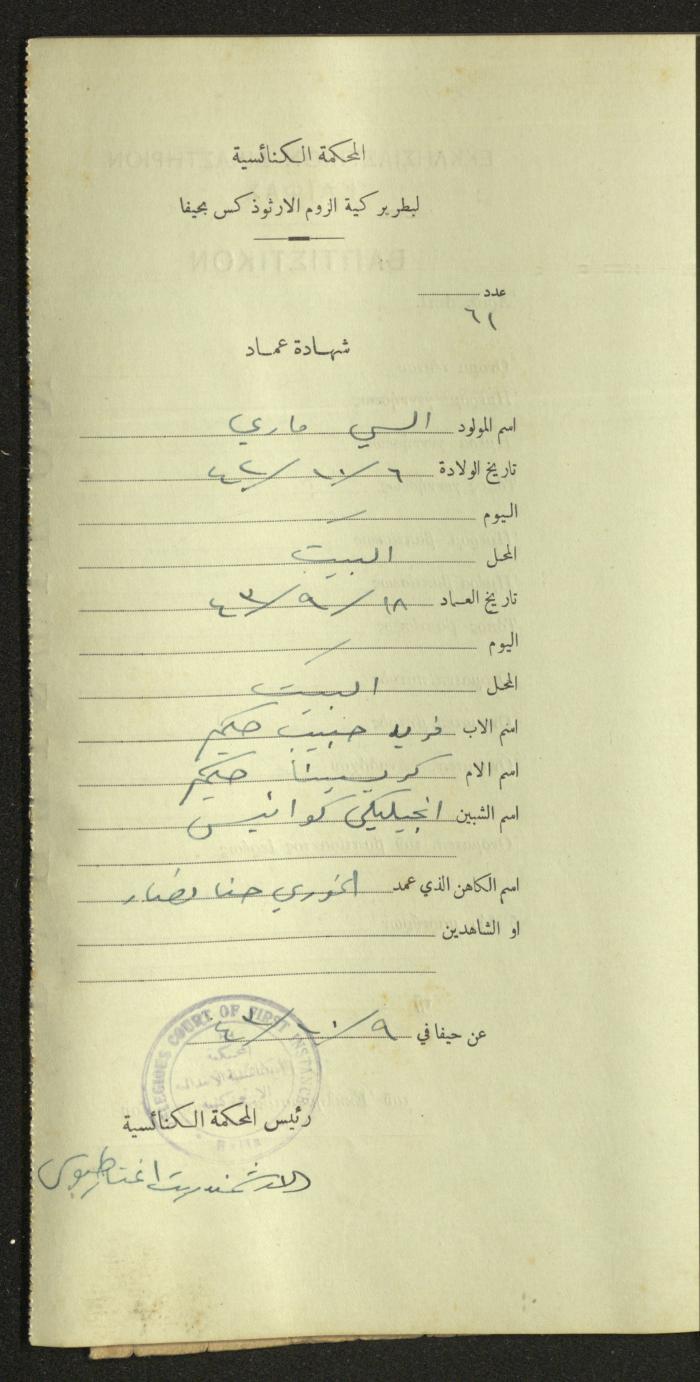 المحكمة الكنائسية
لبطريركية الروم الارثوذكس بحيفا
عدد
٦١
شهادة عماد
اسم المولود السي ماري
تاريخ الولادة ٦/١٠/٤٢
اليوم /
المحل البيت
تاريخ العماد ١٨/٩/٤٣
اليوم /
المحل البيت
اسم الاب فريد حبيب حكيم
اسم الام كريستينا حكيم
اسم الشبين انجيليكي كوانيس
اسم الكاهن الذي عمد الخوري حنا
او الشاهدين
عن حيفا في ٩/١٠/٤٣
COURT OF FIRST INSTANCE
رئيس المحكمة الكنائسية
الارشمندريت